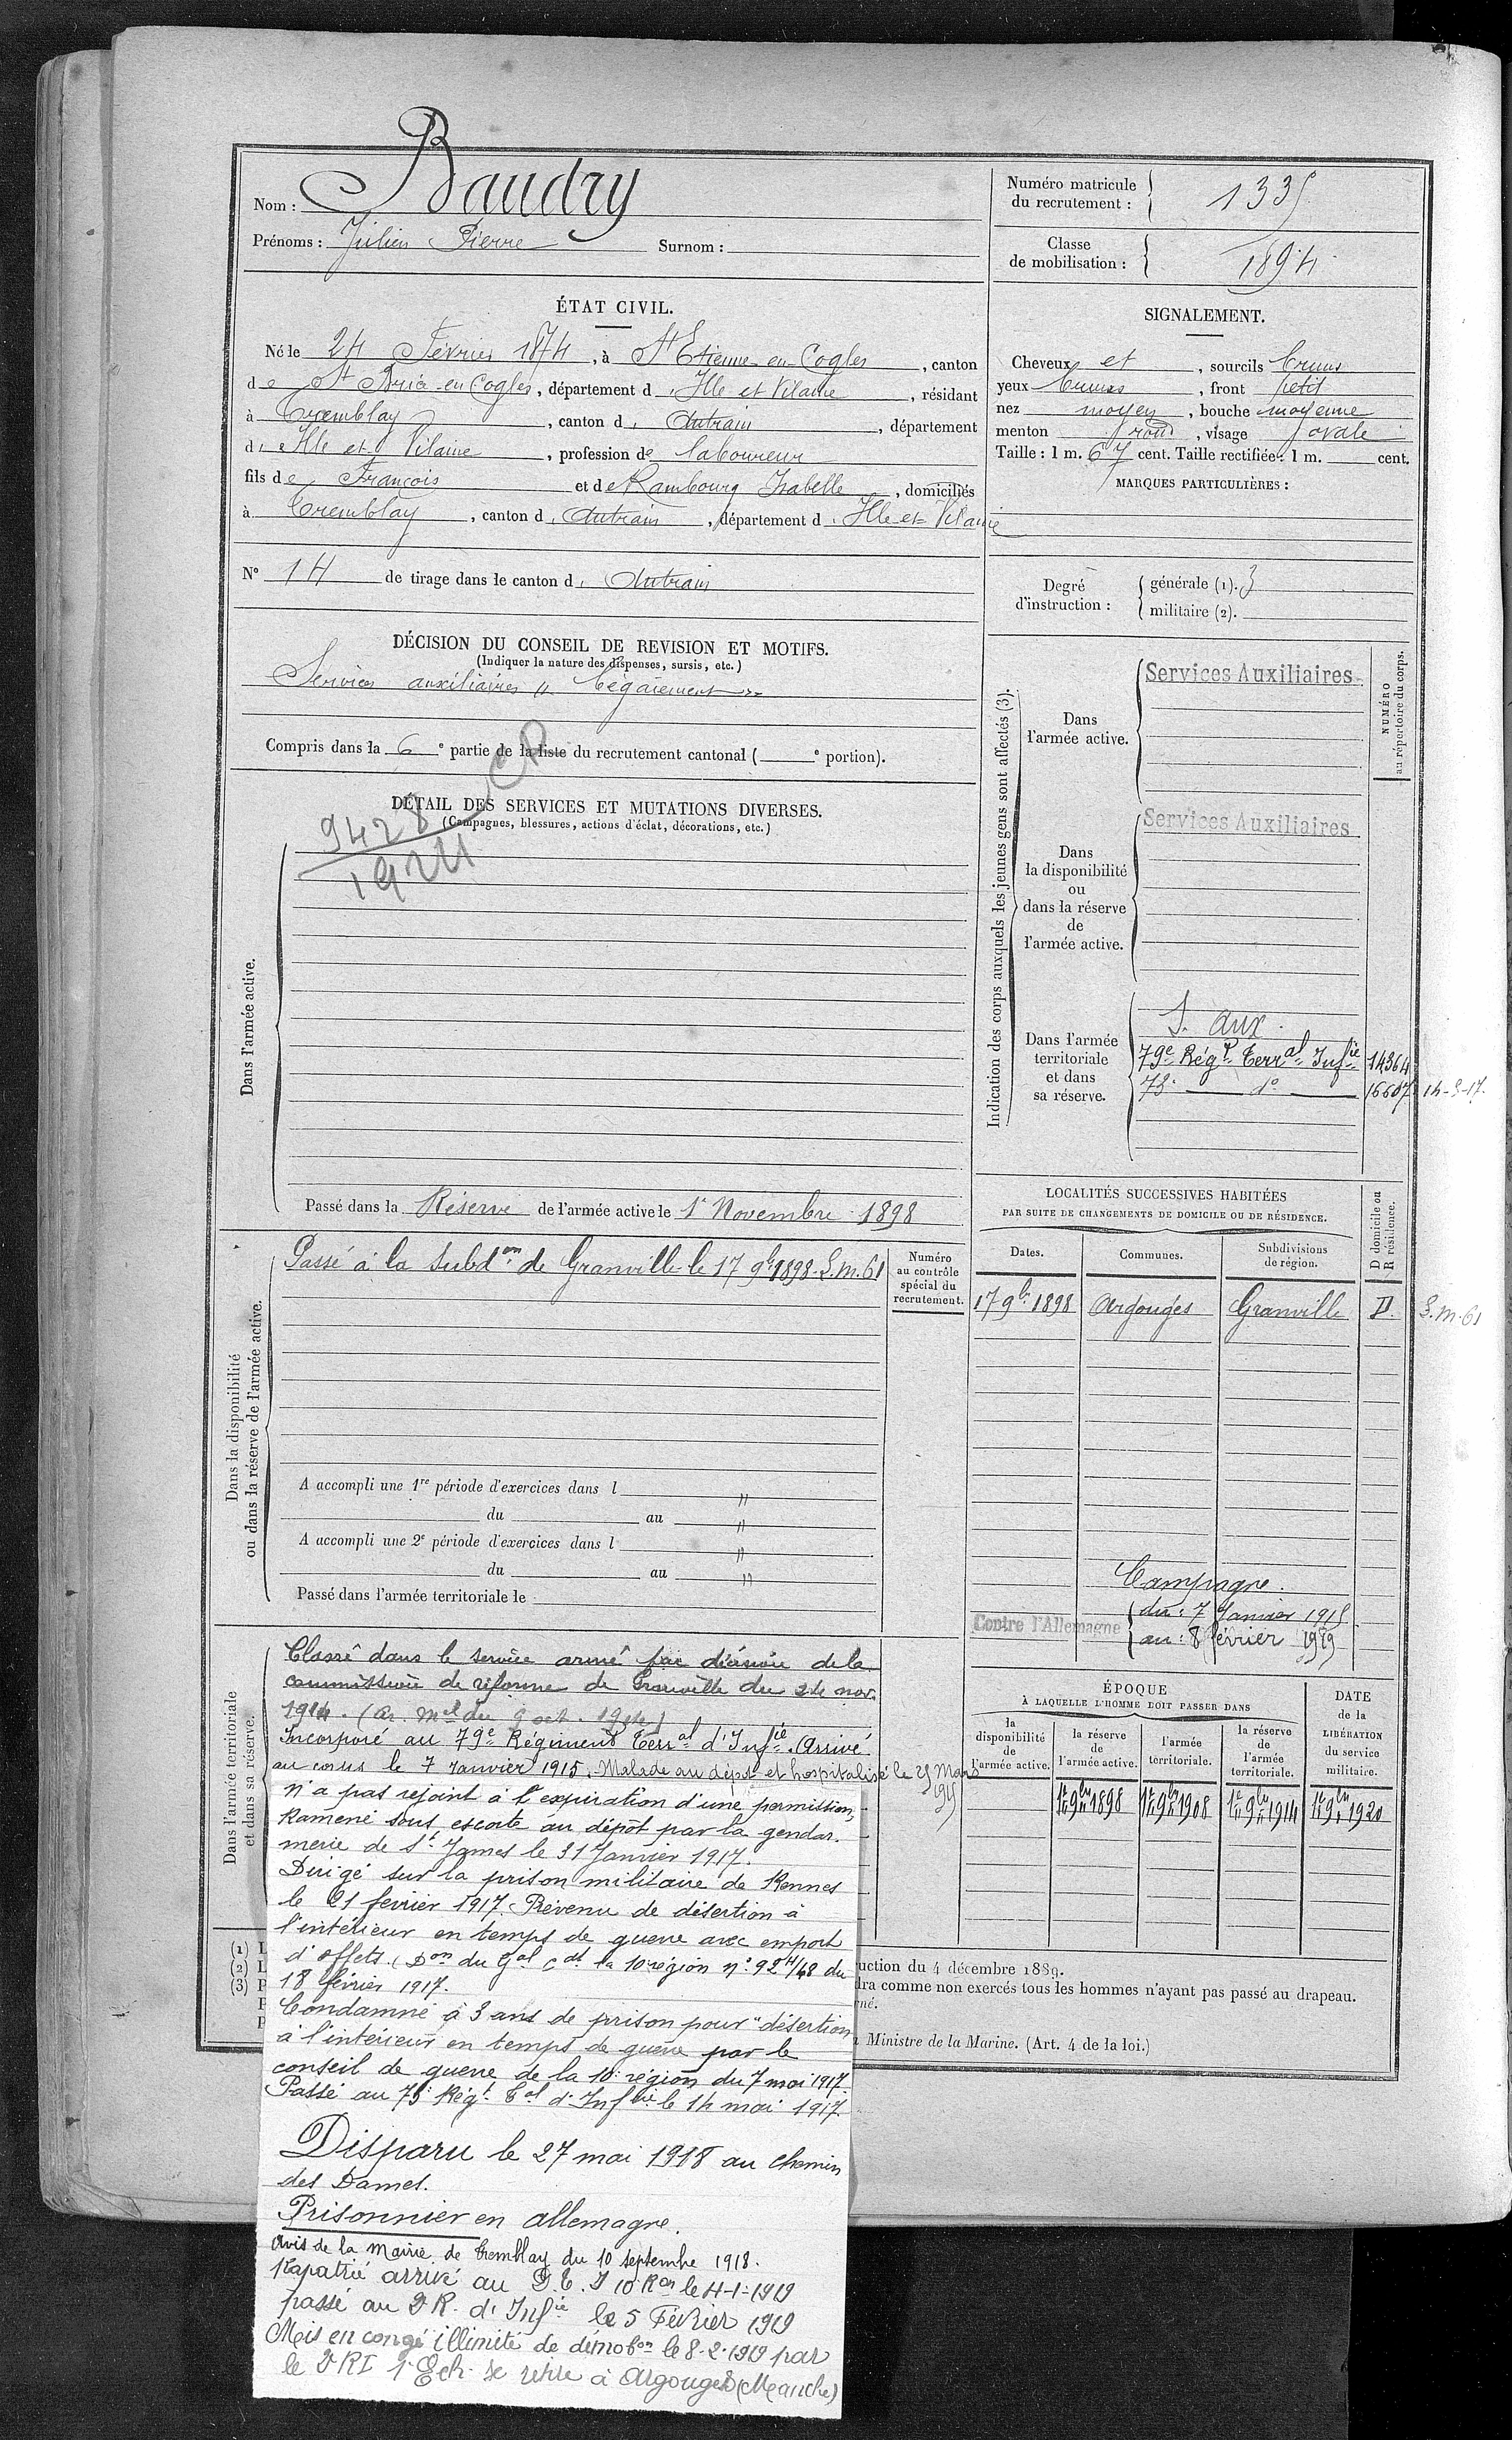 Nom : Baudry
Prénoms : Julien Pierre Surnom :
Numéro matricule du recrutement : 1335
Classe de mobilisation : 1894
ÉTAT CIVIL.
Né le 24 Février 1874, à St Etienne en Cogles, canton
de St Brice en Cogles, département d'Ille et Vilaine, résidant
à Tremblay, canton d'Antrain, département
d'Ille et Vilaine, profession de laboureur
fils de François et de Rambourg Isabelle, domiciliés
à Tremblay, canton d'Antrain, département d'Ille et Vilaine
N° 14 de tirage dans le canton d'Antrain
SIGNALEMENT.
Cheveux et, sourcils bruns
yeux bruns, front petit
nez moyen, bouche moyenne
menton rond, visage ovale
Taille : 1 m. 67 cent. Taille rectifiée : 1 m. cent.
MARQUES PARTICULIÈRES :
Degré d'instruction :
générale (1). 3
militaire (2).
DÉCISION DU CONSEIL DE REVISION ET MOTIFS.
(Indiquer la nature des dispenses, sursis, etc.)
Services auxiliaires " bégaiement "
Compris dans la 6e partie de la liste du recrutement cantonal ( e portion).
CP
DÉTAIL DES SERVICES ET MUTATIONS DIVERSES.
(Campagnes, blessures, actions d'éclat, décorations, etc.)
9428
1924
Dans l'armée active.
Passé dans la Réserve de l'armée active le 1r Novembre 1898
Indication des corps auxquels les jeunes gens sont affectés (3).
NUMÉRO
au répertoire du corps.
Dans
l'armée active.
Services Auxiliaires
Dans
la disponibilité
ou
dans la réserve
de
l'armée active.
Services Auxiliaires
Dans l'armée
territoriale
et dans
sa réserve.
S. aux.
79e Régt Terral Infie 14364
75e d° 16607 14-5-17.
Dans la disponibilité
ou dans la réserve de l'armée active.
Passé à la Subdon de Granville le 17 9bre 1898. S.M. 61
Numéro
au contrôle
spécial du
recrutement.
A accompli une 1re période d'exercices dans l "
du au "
A accompli une 2e période d'exercices dans l "
du au "
Passé dans l'armée territoriale le
LOCALITÉS SUCCESSIVES HABITÉES
PAR SUITE DE CHANGEMENTS DE DOMICILE OU DE RÉSIDENCE.
D domicile ou
R résidence.
Dates. Communes. Subdivisions de région.
17 9bre 1898 Argouges Granville D. S.M. 61
Campagne.
Contre l'Allemagne
du : 7 Janvier 1915
au : 8 février 1919
ÉPOQUE
À LAQUELLE L'HOMME DOIT PASSER DANS
la disponibilité de l'armée active.
la réserve de l'armée active.
l'armée territoriale.
la réserve de l'armée territoriale.
DATE de la LIBÉRATION du service militaire.
1er 9bre 1898 1er 9bre 1908 1er 9bre 1914 1er 9bre 1920
Dans l'armée territoriale
et dans sa réserve.
Classé dans le service armé par décision de la
commission de réforme de Granville du 24 nov.
1914. (ar. mel du 9 oct. 1914)
Incorporé au 79e Régiment Terral d'Infie. Arrivé
au corps le 7 Janvier 1915. Malade au dépôt et hospitalisé le 25 Mars
1915
n'a pas rejoint à l'expiration d'une permission,
Ramené sous escorte au dépôt par la gendar-
merie de St James le 31 Janvier 1917.
Dirigé sur la prison militaire de Rennes
le 21 février 1917. Prévenu de désertion à
l'intérieur en temps de guerre avec emport
d'effets. (Don du Gal Cdt la 10e région n° 924/48 du
18 février 1917.
Condamné à 3 ans de prison pour "désertion
à l'intérieur en temps de guerre par le
conseil de guerre de la 10e région du 7 mai 1917.
Passé au 75e Régt Tal d'Infie le 14 mai 1917.
Disparu le 27 mai 1918 au chemin
des Dames.
Prisonnier en allemagne.
Avis de la Mairie de Tremblay du 10 septembre 1918.
Rapatrié arrivé au D.T.I 10e Ron le 4-1-1919
passé au 2e R. d'Infie le 5 Février 1919
Mis en congé illimité de démobon le 8-2-1919 par
le 2e RI 1r Ech. se retire à Argouges (Manche)
(1) L
(2) L
(3) P
uction du 4 décembre 1889.
dra comme non exercés tous les hommes n'ayant pas passé au drapeau.
rné.
Ministre de la Marine. (Art. 4 de la loi.)